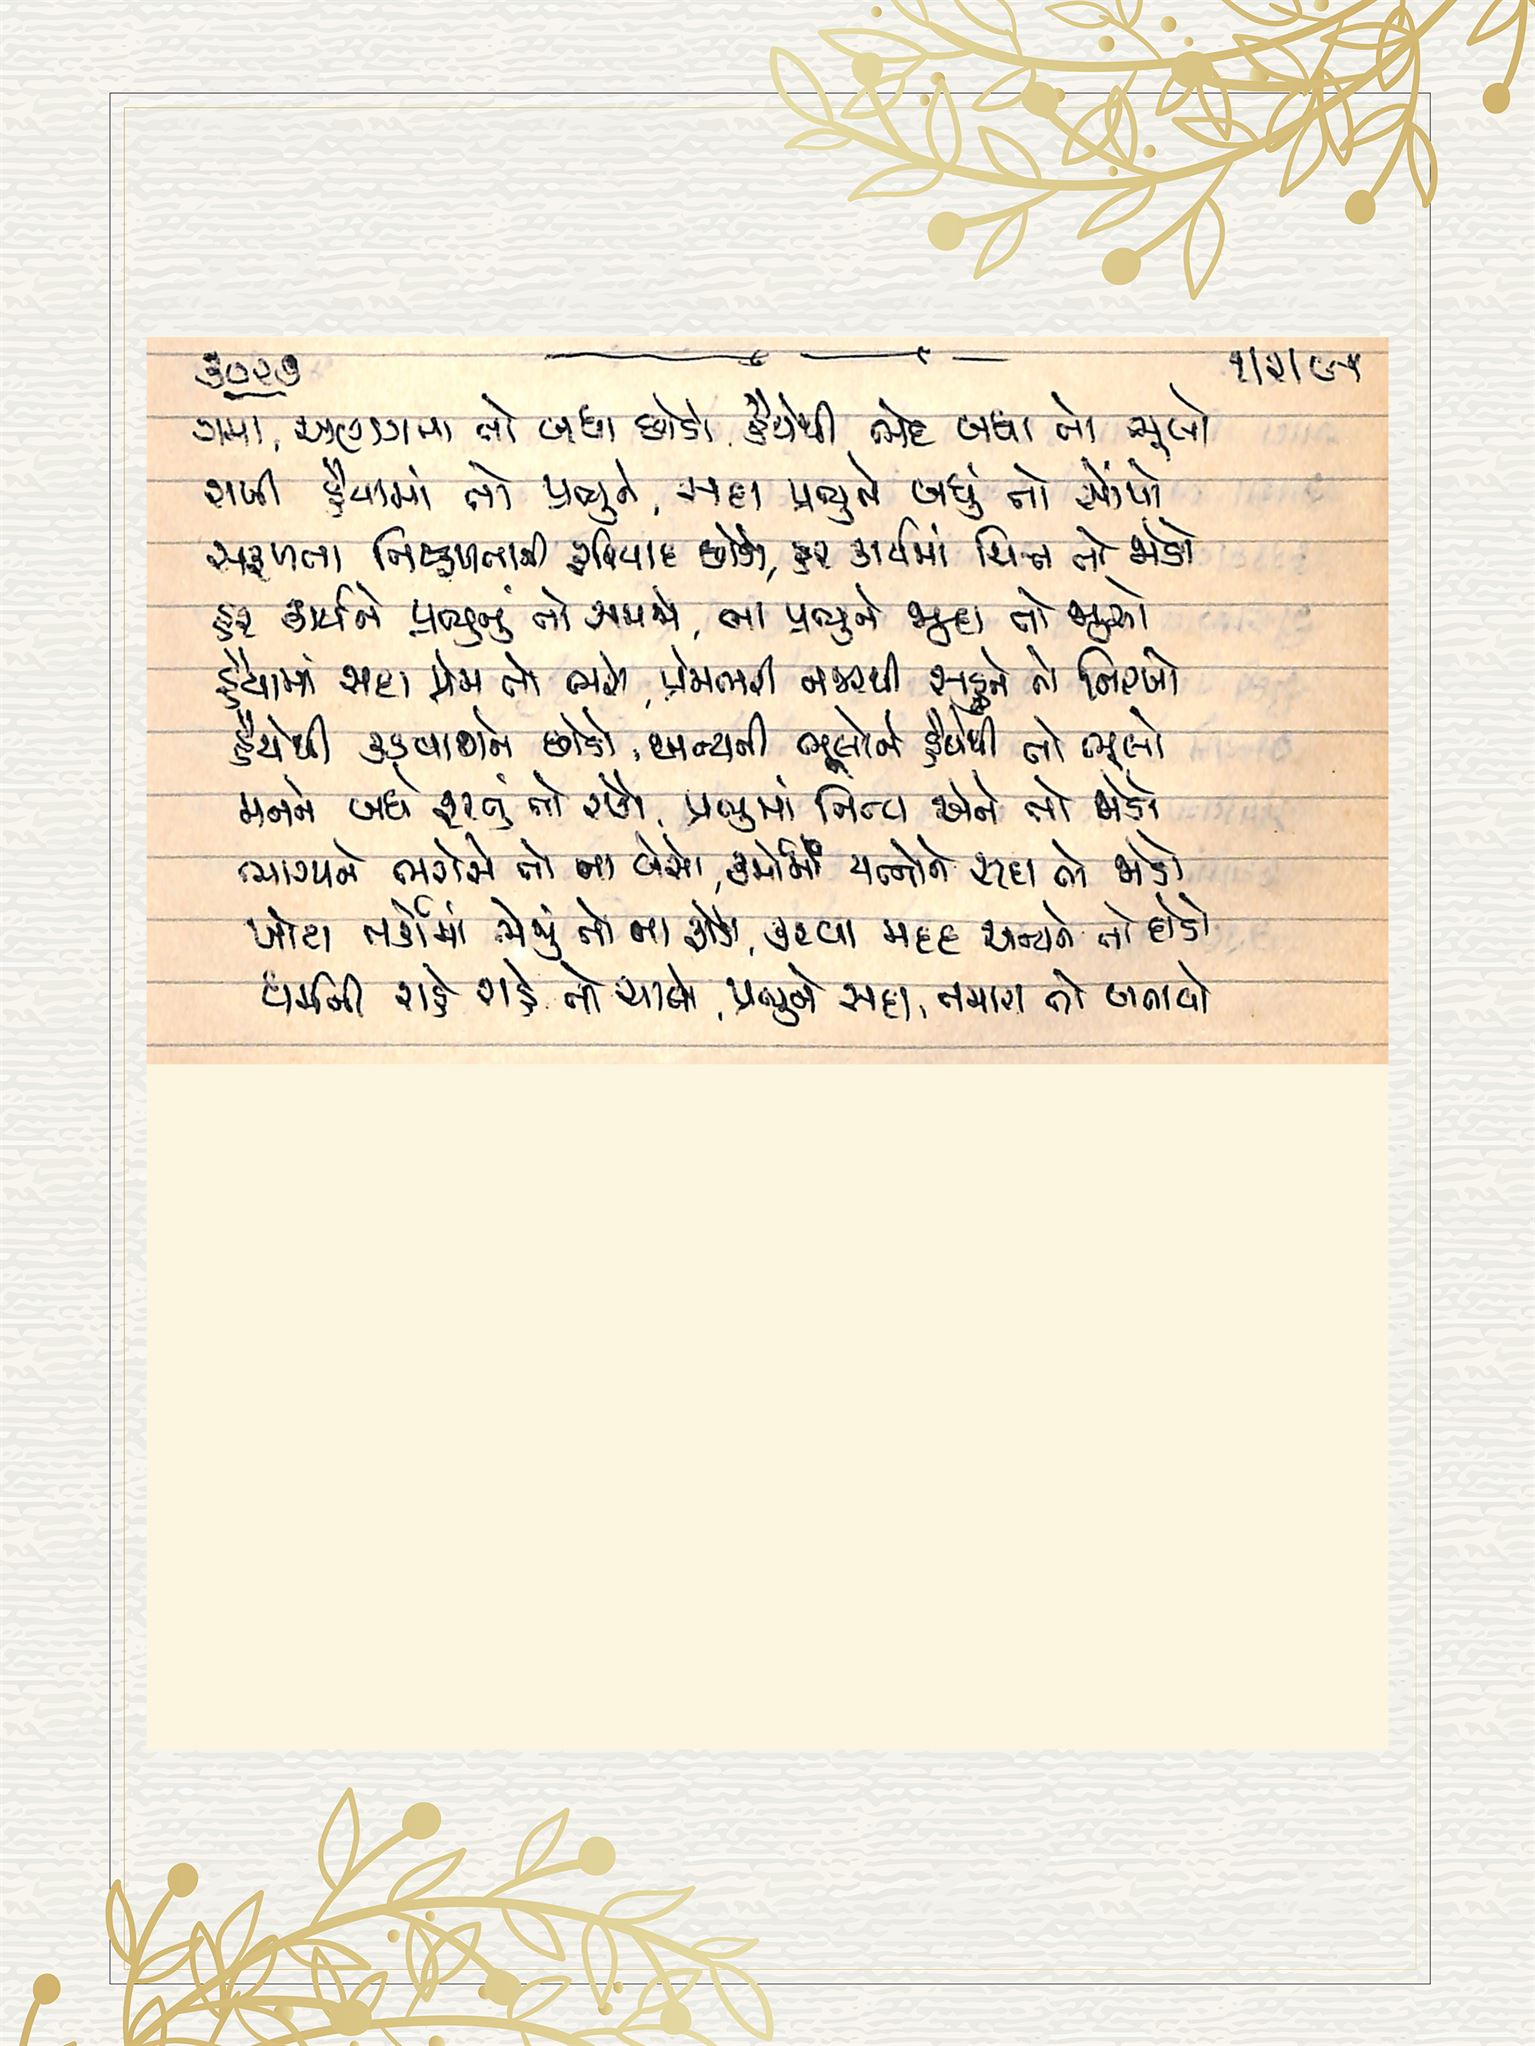 ૩૦૨૭ ૧/૨/૯૧
ગમા, અણગમા તો બધા છોડો, હૈયેથી ભેદ બધા તો ભૂલો
રાખી હૈયામાં તો પ્રભુને, સદા પ્રભુને બધું તો સોંપો
સફળતા નિષ્ફળતાની ફરિયાદ છોડો, હર કાર્યમાં ચિત્ત તો જોડો
હર કાર્યને પ્રભુનું તો સમજો, ના પ્રભુને જુદા તો જુઓ
હૈયામાં સદા પ્રેમ તો ભરો, પ્રેમભરી નજરથી સહુને તો નિરખો
હૈયેથી કડવાશને છોડો, અન્યની ભૂલોને હૈયેથી તો ભૂલો
મનને બધે ફરતું તો રોકો, પ્રભુમાં નિત્ય એને તો જોડો
ભાગ્યને ભરોસે તો ના બેસો, કર્મોમાં યત્નોને સદા તો જોડો
ખોટા તર્કોમાં તો ના દોડો, કરવા મદદ અન્યને તો દોડો
ધર્મની રાહે રાહે તો ચાલો, પ્રભુને સદા, તમારા તો બનાવો